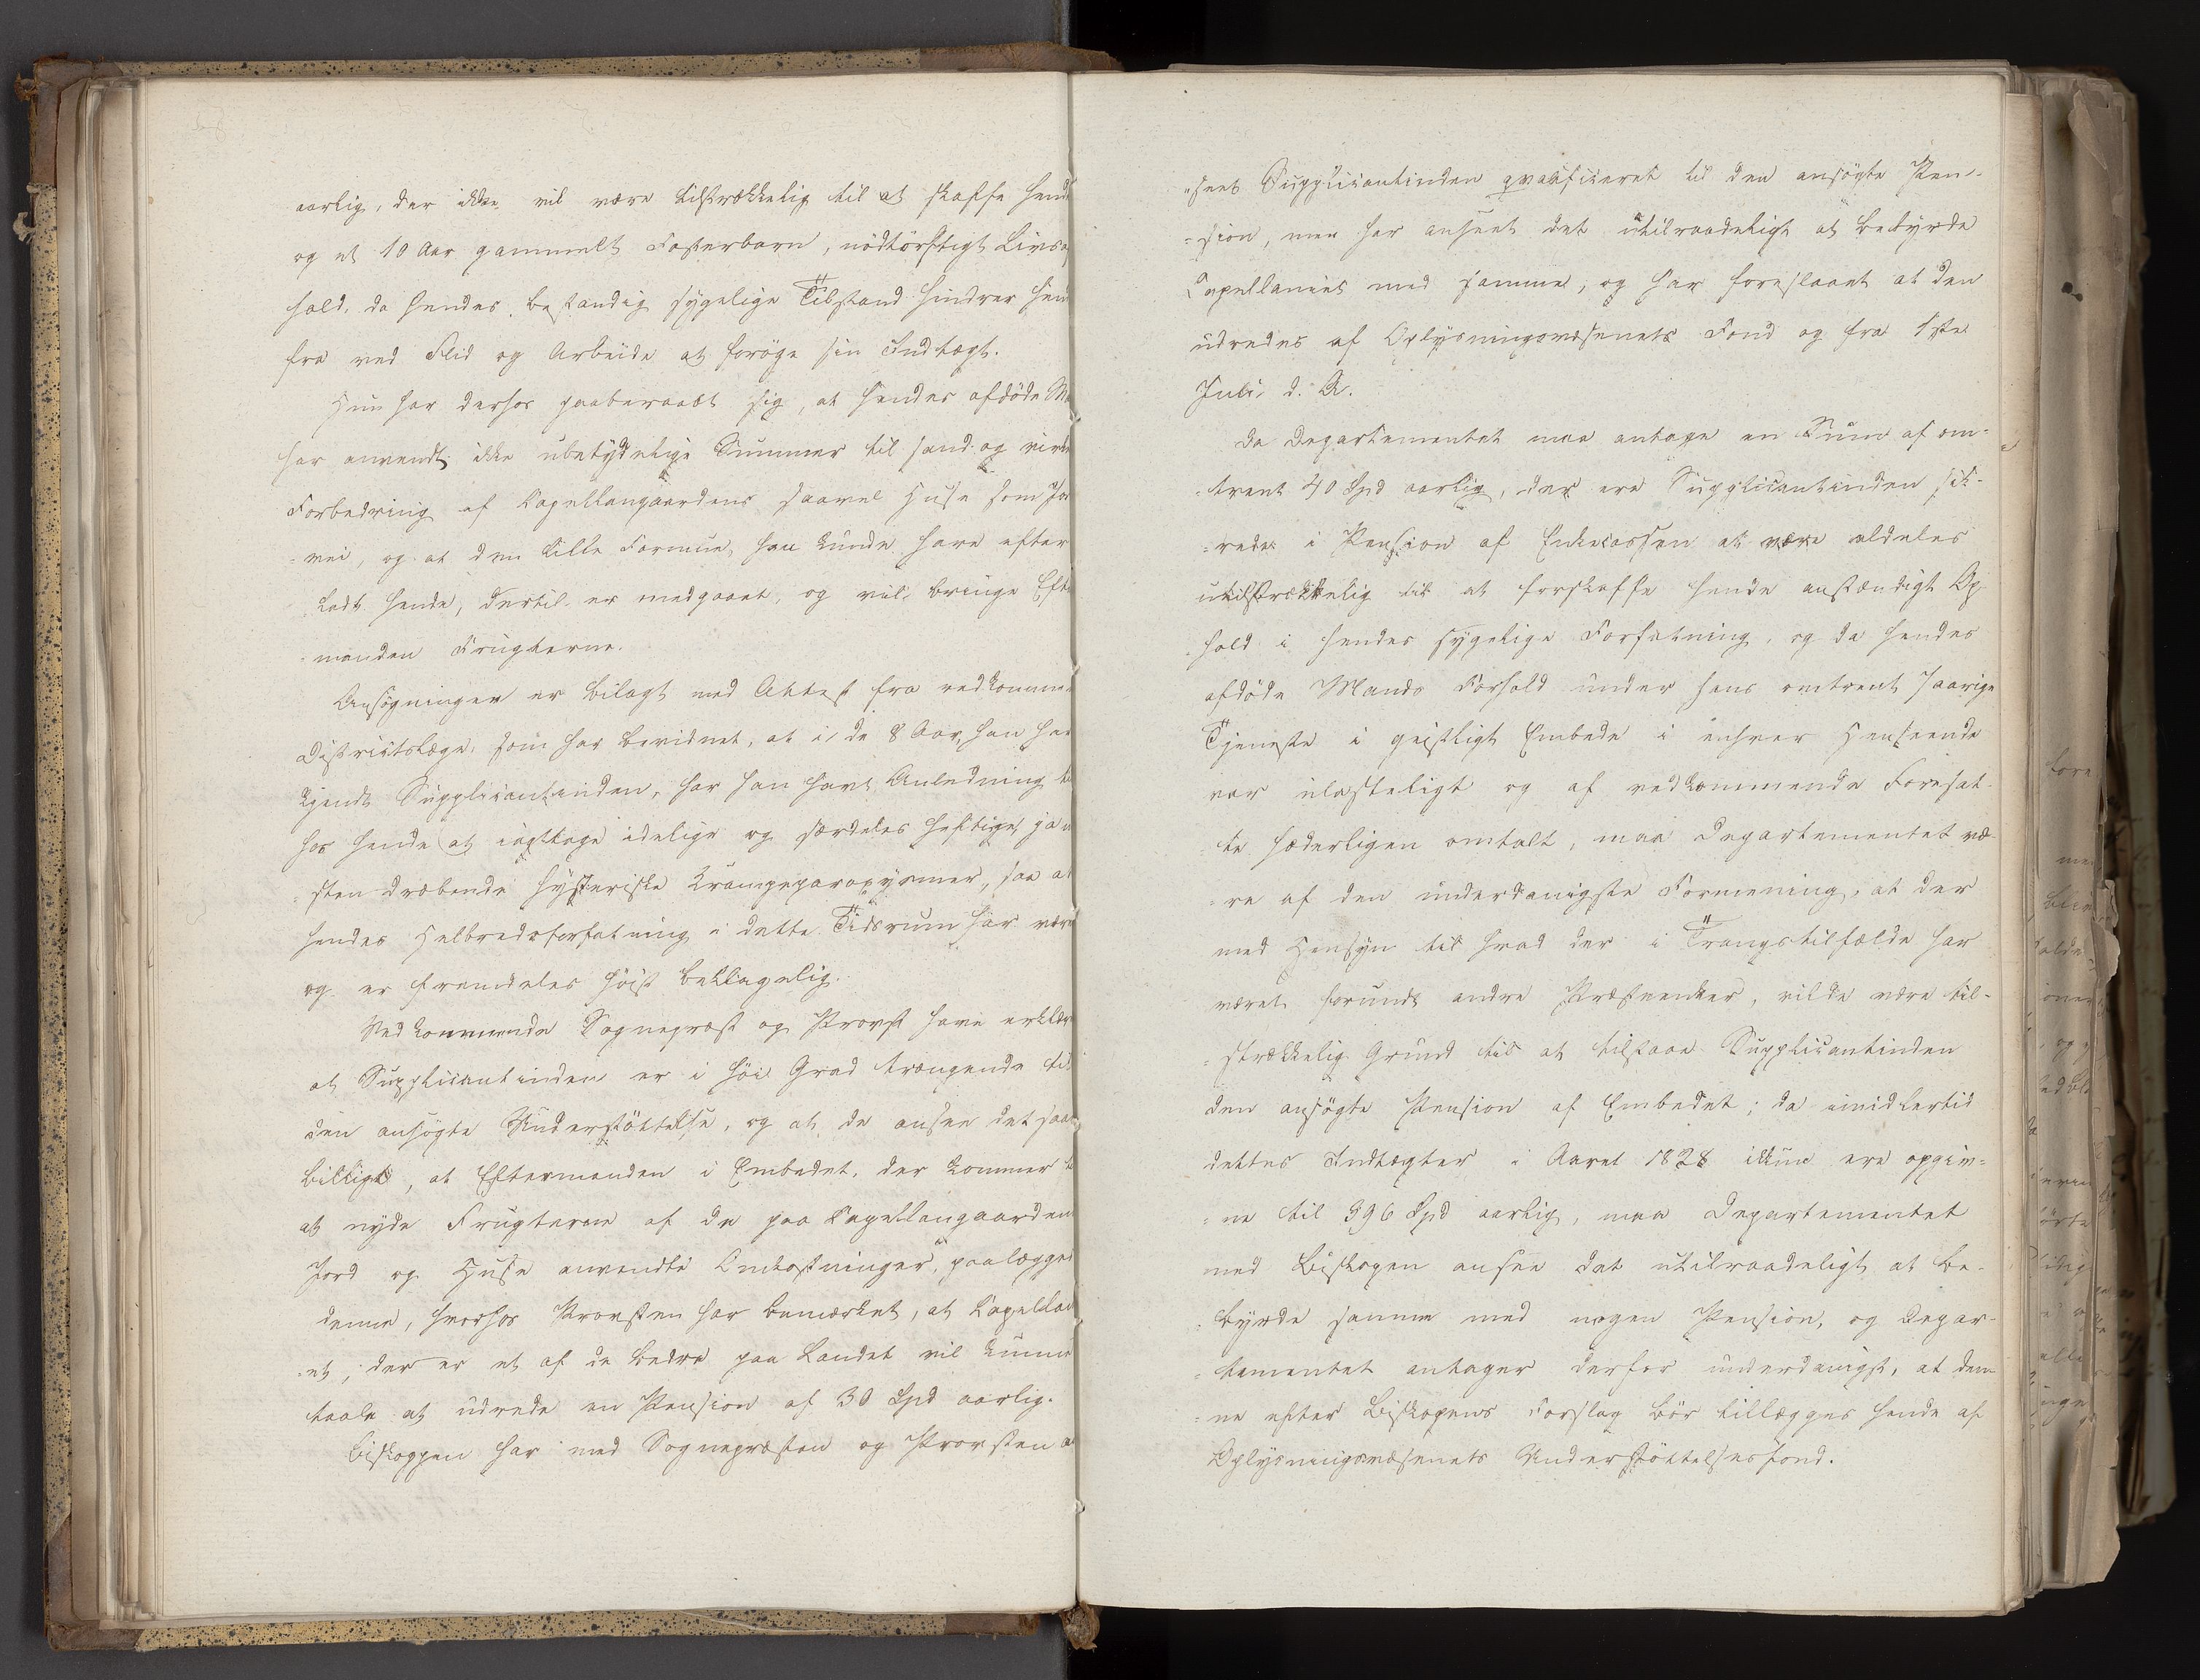 aarlig, der ikke vil være tilstrækkelig til at skaffe hend
og et 10 Aar gammelt Fosterbarn, nödtörftigt Livso
hold, da hendes bestandig sygelige Tilstand hindrer hen
fra ved Flid og Arbeide at foröge sin Indtægt.
Hun har derhos paaberaabt sig, at hendes afdöde M
har anvendt ikke ubetydelige Summer til sand og virke
Forbedring af Capellangaardens saavel Huse som Jor
vei, og at den lille Formue, han kunde have efter
ladt hende, dertil er medgaaet, og vil bringe Efte
manden Frugterne.
Ansögningen er bilagt med Attest fra vedkomme
Districtslæge, som har bevidnet, at i de 8 Aar, han har
kjendt Supplicantinden, har han havt Anledning ti
hos hende at iagttage idelige og særdeles heftige, ja n
sten dræbende hysteriske Krampeparoxysmer, saa at
hendes Helbredsforfatning i dette Tidsrum har være
og er fremdeles höist beklagelig.
Vedkommende Sognepræst og Provst have erklær
at Supplicantinden er i höi Grad trængende til
den ansögte Understöttelse, og at de ansee det saa
billigt, at Eftermanden i Embedet, der kommer ti
at nyde Frugterne af de paa Capellangaarden
Jord og Huse anvendte Omkostninger, paalægges
denne, hvorhos Provsten har bemærket, at Capellan
-et, der er et af de bedre paa Landet vil kunne
taale at udrede en Pension af 30 Spd aarlig.
Biskoppen har med Sognepræsten og Provsten a
"seet Supplicantinden qvalificeret til den ansögte Pen-
=sion, men har anseet det utilraadeligt at bebyrde
Capellaniet med samme, og har foreslaaet at den
udredes af Oplysningsvæsenets Fond og fra 1ste
Juli d. A.
Da Departementet maa antage en Sum af om-
=trent 40 Spd aarlig, der ere Supplicantinden sik-
=rede i Pension af Enkecassen at være aldeles
utilstrækkelig til at forskaffe hende anstændigt Op
hold i hendes sygelige Forfatning, og da hendes
afdöde Mands Forhold under hans omtrent 7aarige
Tjeneste i geistligt Embede i enhver Henseende
var ulasteligt og af vedkommende Foresat-
te hæderligen omtalt, maa Departementet væ-
=re af den underdanigste Formening, at der
med Hensyn til hvad der i Trangstilfælde har
været forundt andre Præsteenker, vilde være til-
=strækkelig Grund til at tilstaae Supplicantinden
den ansögte Pension af Embedet; da imidlertid
dettes Indtægter i Aaret 1828 ikkun ere opgiv=
=ne til 396 Spd aarlig, maa Departementet
med Biskopen ansee det utilraadeligt at be-
=byrde samme med nogen Pension, og Depar-
=tementet antager derfor underdanigst, at den-
=ne efter Biskopens Forslag bör tillægges hende af
Oplysningsvæsenets Understöttelsesfond.